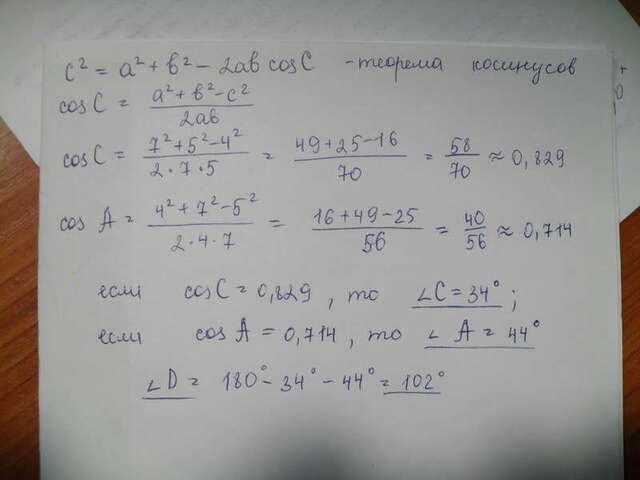 c² = a² + b² - 2ab cosC - теорема косинусов
cosC = (a² + b² - c²)/(2ab)
cosC = (7² + 5² - 4²)/(2·7·5) = (49 + 25 - 16)/70 = 58/70 ≈ 0,829
cos A = (4² + 7² - 5²)/(2·4·7) = (16 + 49 - 25)/56 = 40/56 ≈ 0,714
если cosC = 0,829, то ∠C = 34°;
если cosA = 0,714, то ∠A = 44°
∠D = 180° - 34° - 44° = 102°